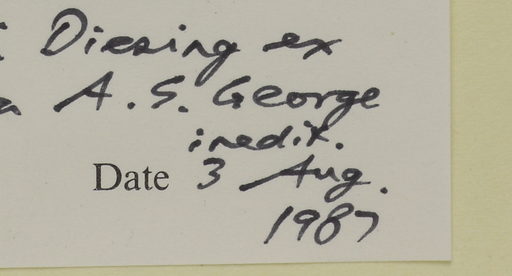 Diesing ex
A. S. George
inedit.
Date 3 Aug.
1987